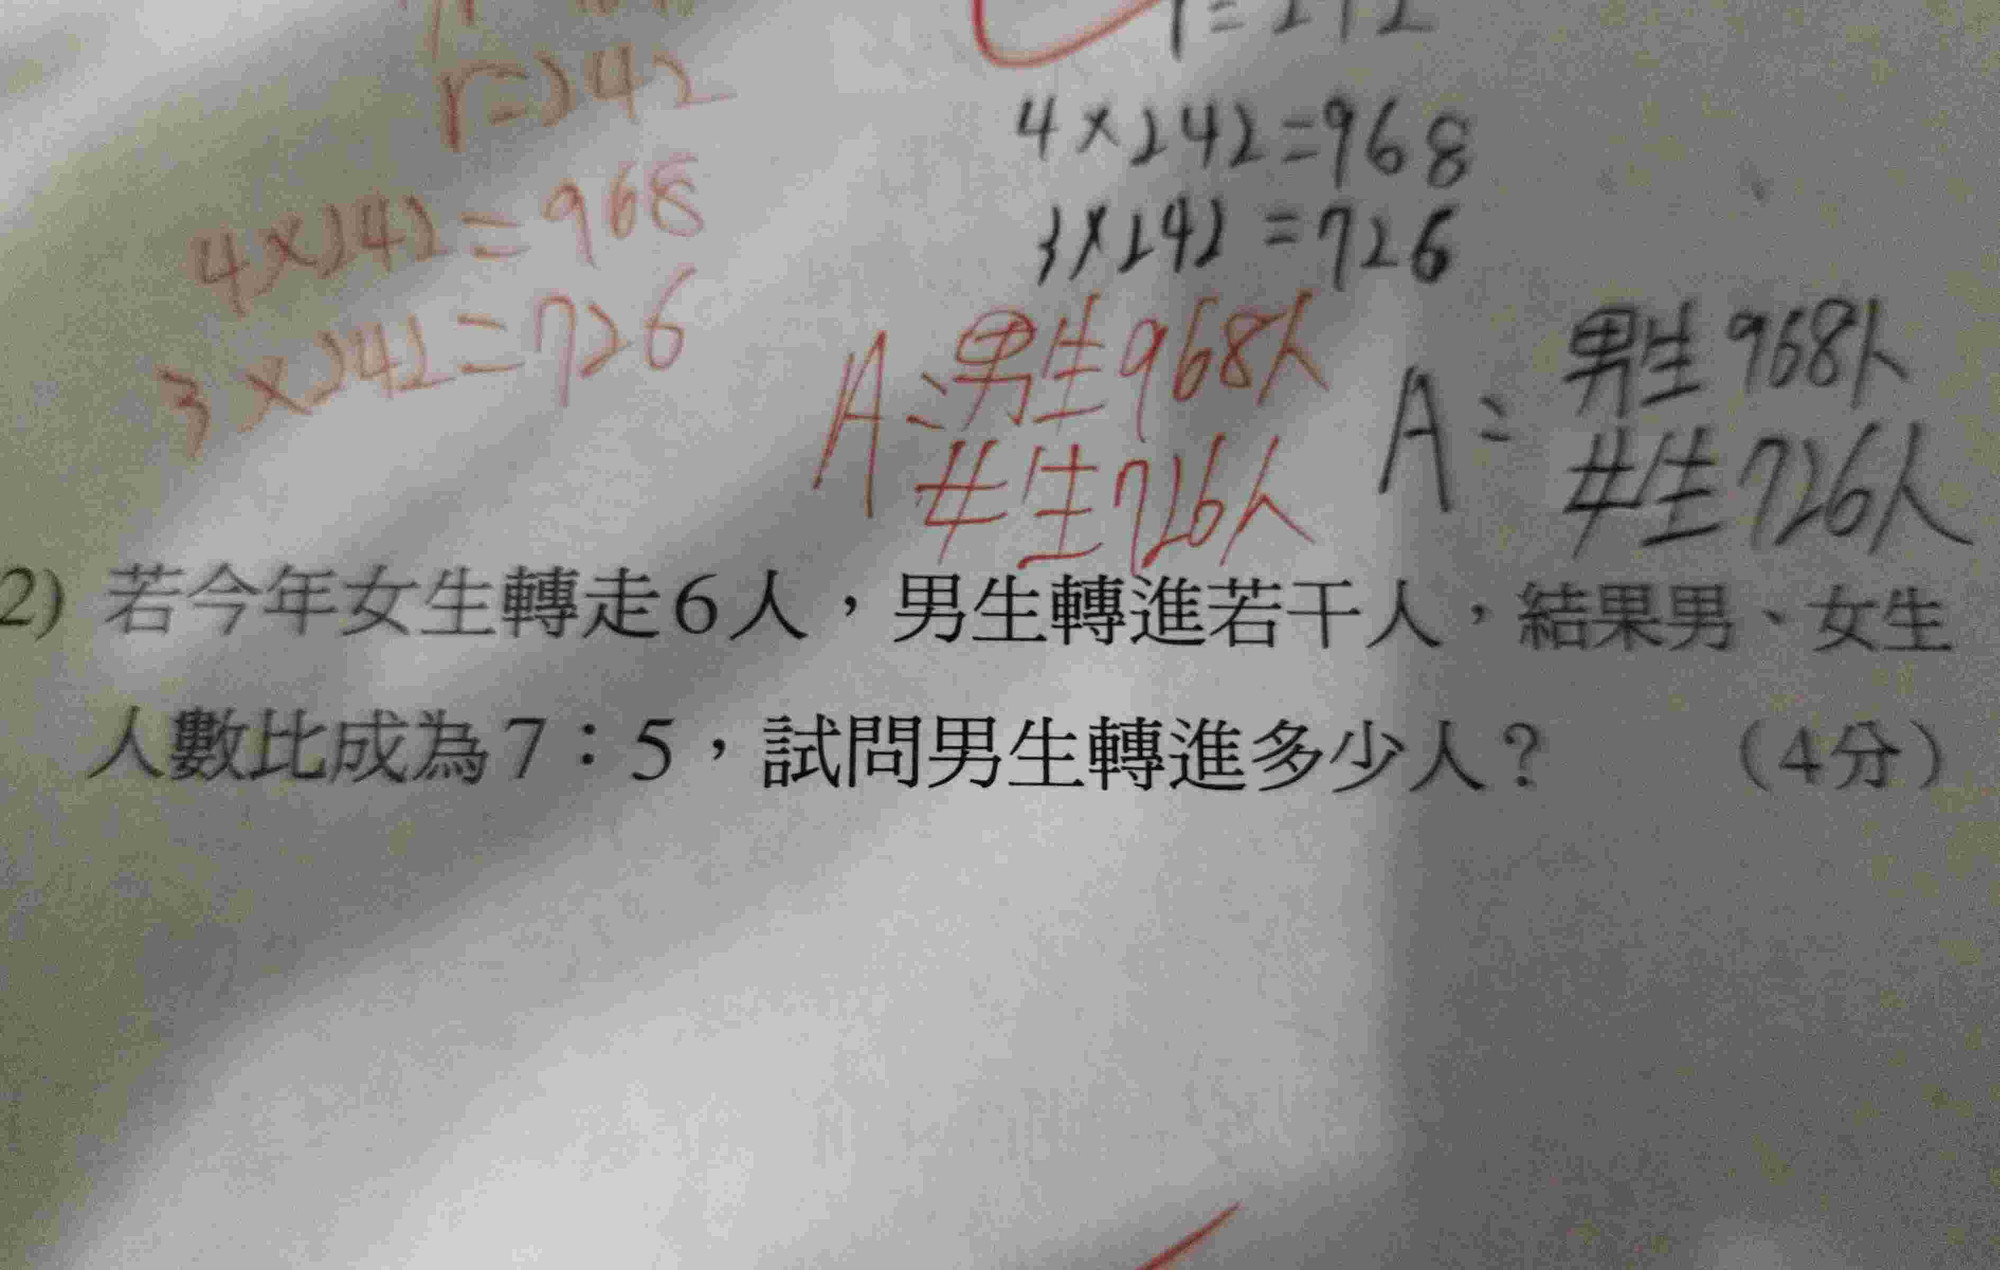 r=242
4×242=968
3×242=726
4×242=968
3×242=726
A:男生968人
女生726人
A:男生968人
女生726人
2) 若今年女生轉走6人，男生轉進若干人，結果男、女生
人數比成為7：5，試問男生轉進多少人？ （4分）